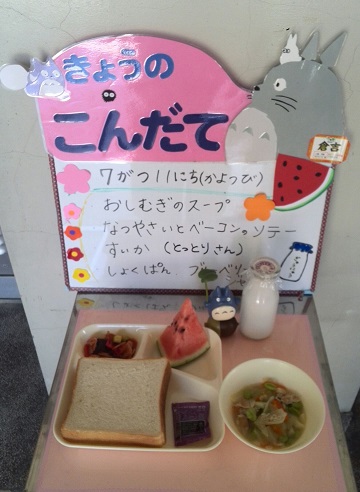 きょうの
こんだて
倉吉
7がつ11にち(かようび)
おしむぎのスープ
なつやさいとベーコンのソテー
すいか (とっとりさん)
しょくぱん